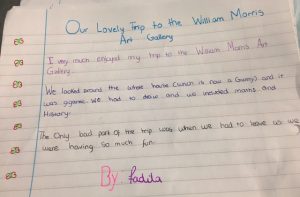 Our Lovely Trip to the William Morris
Art Gallery
I very much enjoyed my trip to the William Morris Art
Gallery.
We looked around the whole house (which is now a Gallery) and it
was gigantic. We had to draw and we included maths and
History.
The Only bad part of the trip was when we had to leave as we
were having so much fun.
By: Fadila